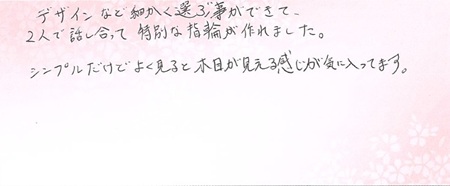 デザインなど細かく選ぶ事ができて、
2人で話し合って特別な指輪が作れました。
シンプルだけどよく見ると木目が見える感じが気に入ってます。